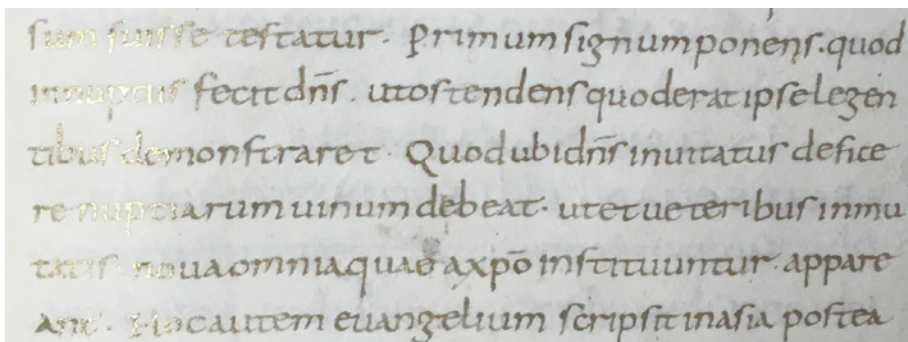 sum fuisse testatur. Primum signum ponens. quod
innuptiis fecit dn̄s. utostendens quod erat ipse legen
tibus demonstraret. Quod ubi dn̄s inuitatus defice
re nuptiarum uinum debeat. utet ueteribus inmu
tatis noua omnia quae axpō instituuntur. appare
ant. Hoc autem euangelium scripsit inasia postea